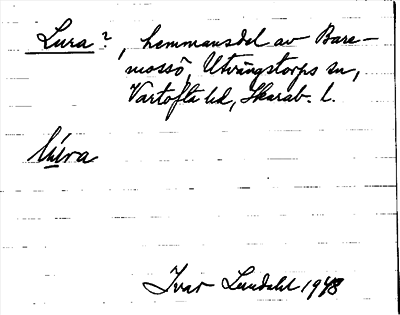 Lura?, hemmansdel av Bare-
mossö, Utvängstorps sn,
Vartofta hd, Skarab. l.
lúra
Ivar Lundahl 1948